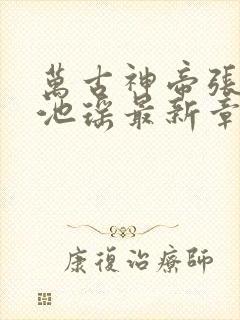 萬古神帝張
池瑤最新章
康復治療師